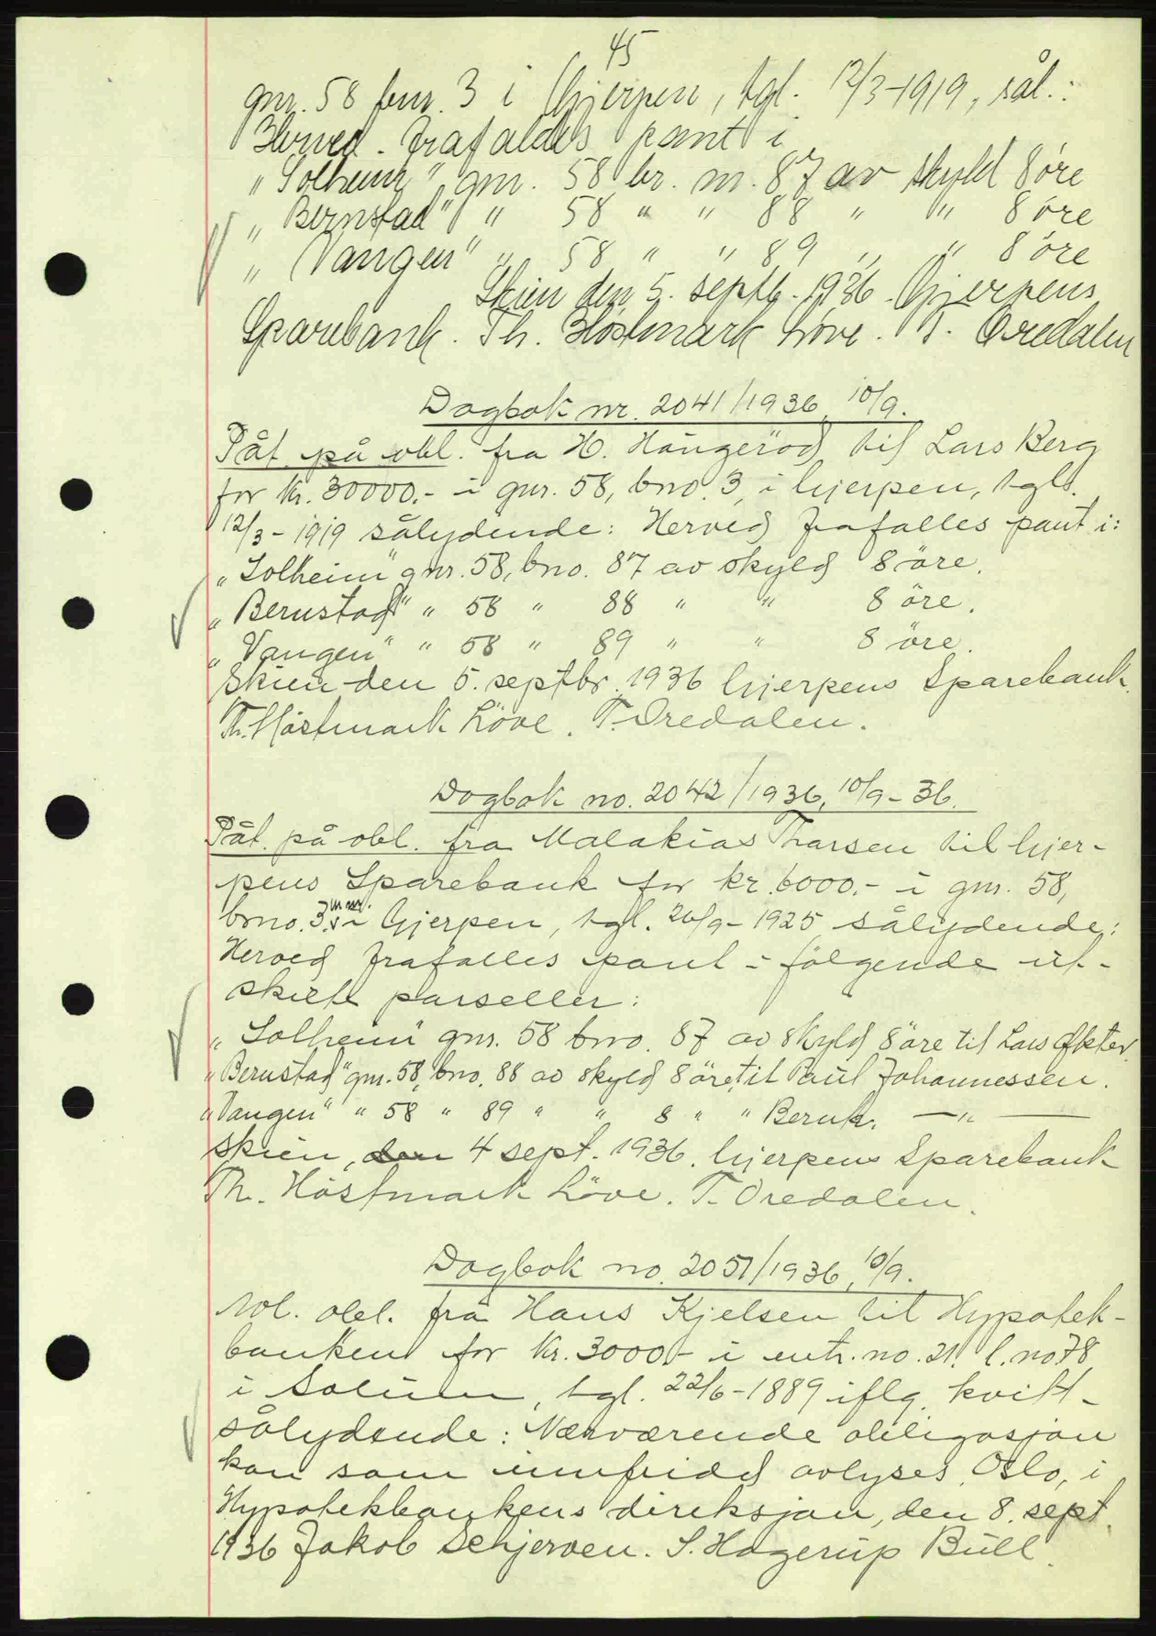 45
gnr. 58 bnr. 3 i Gjerpen, tgl. 12/3-1919, sål.:
Herved frafaldes pant i
"Solheim", gnr. 58 br. nr. 87 av skyld 8 öre
"Bernstad" " 58 " " 88 " " 8 öre
"Vangen" " 58 " " 89 " " 8 öre
Skien den 5. septb. 1936. Gjerpens
Sparebank. Th. Höstmark Löve. T. Oredalen
Dagbok nr. 2041/1936, 10/9.
Påt. på obl. fra H. Haugeröd til Lars Berg
for kr. 30000.- i gnr. 58, bno. 3, i Gjerpen, tgl.
12/3-1919 sålydende: Herved frafalles pant i:
"Solheim" gnr. 58, bno. 87 av skyld 8 öre.
"Bernstad" " 58 " 88 " " 8 öre.
"Vangen" " 58 " 89 " " 8 öre.
Skien den 5. septbr. 1936 Gjerpens Sparebank.
Th. Höstmark Löve. T. Oredalen.
Dagbok no. 2042/1936, 10/9-36.
Påt. på obl. fra Malakias Thorsen til Gjer-
pens Sparebank for kr. 6000.- i gnr. 58,
bno. 3 m.m. i Gjerpen, tgl. 26/9-1925 sålydende:
Herved frafalles pant i følgende ut-
skilte parseller:
"Solheim" gnr. 58 bno. 87 av skyld 8 öre til Lars
"Bernstad" gnr. 58, bno. 88 av skyld 8 öre, til Paul Johannessen.
"Vangen" " 58 " 89 " " 8 " " Bernh. —"—
Skien, den 4 sept. 1936. Gjerpens Sparebank
Th. Höstmark Löve. T. Oredalen.
Dagbok no. 2051/1936, 10/9.
obl. fra Hans Kjelsen til Hypotek-
banken for kr. 3000.- i mtr. no. 21. l. no 78
i Solum, tgl. 22/6-1889 iflg. kvitt-
sålydende: Nærværende obligasjon
kan som innfridd avlyses. Oslo, i
Hypotekbankens direksjon, den 8. sept.
1936 Jakob Schjerven. S. Hagerup Bull.